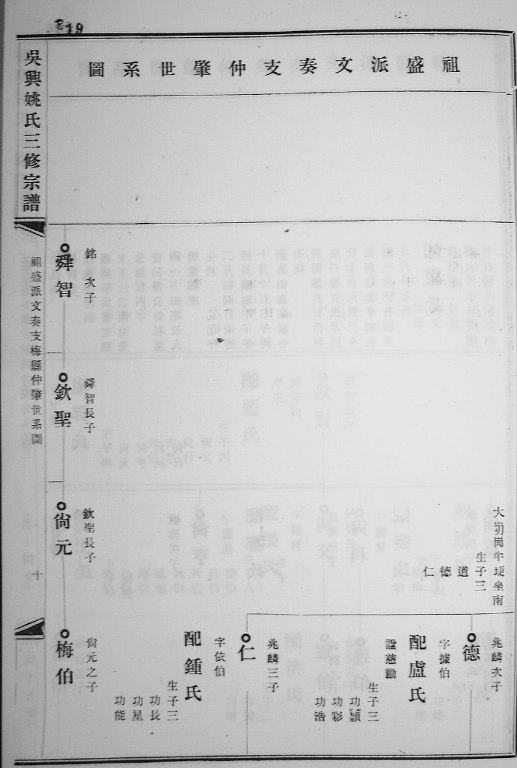 19
祖盛派文奏支仲肇世系圖
大坜岡牛埂坐南
生子三
道
德
仁
德
兆麟次子
字據伯
配盧氏
諡慈勤
生子三
功頴
功彩
功浩
仁
兆麟三子
字依伯
配鍾氏
生子三
功長
功星
功能
舜智
銘次子
欽聖
舜智長子
尙元
欽聖長子
梅伯
尙元之子
吳興姚氏三修宗譜
祖盛派文奏支梅縣仲肇世系圖
十